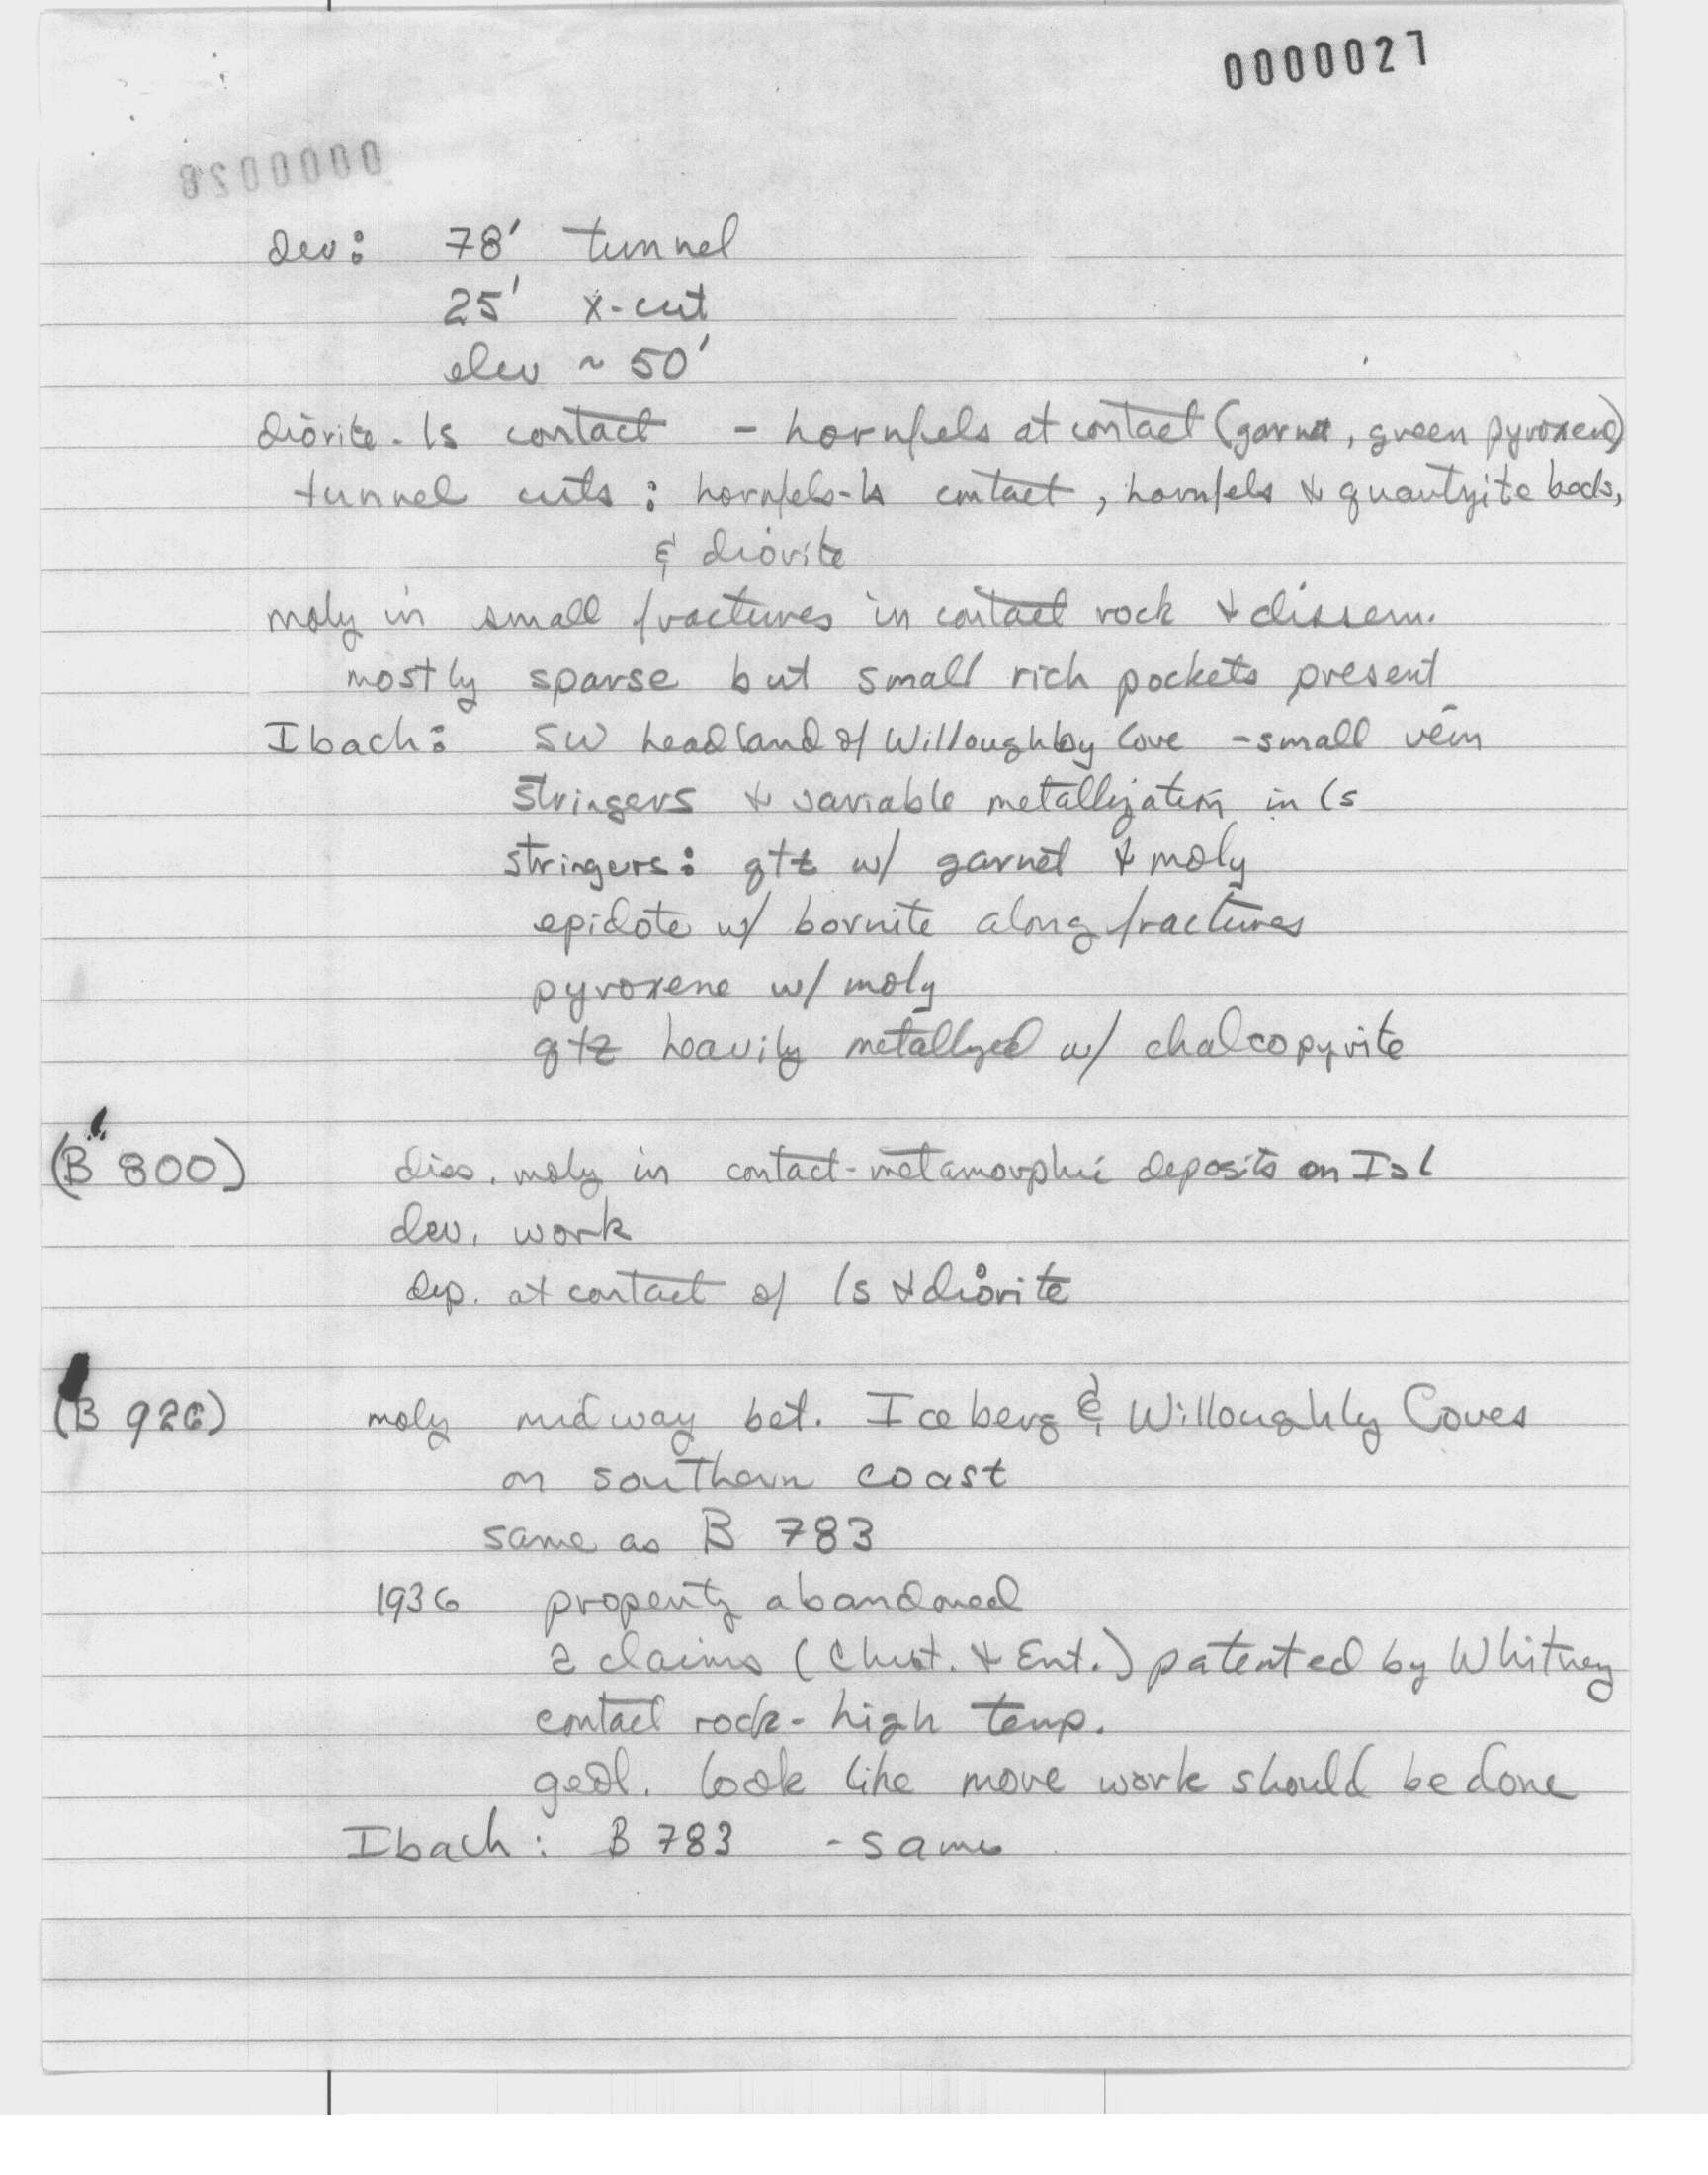 0000027
0000028
dev: 78' tunnel
25' x-cut
elev ~ 50'
diorite-ls contact - hornfels at contact (garnet, green pyroxene)
tunnel cuts: hornfels-ls contact, hornfels & quartzite beds,
& diorite
moly in small fractures in contact rock & dissem.
mostly sparse but small rich pockets present
Ibach: SW headland of Willoughby Cove - small vein
stringers & variable metallization in ls
stringers: qtz w/ garnet & moly
epidote w/ bornite along fractures
pyroxene w/ moly
qtz heavily metallized w/ chalcopyrite
(B 800) diss. moly in contact-metamorphic deposits on Isl
dev. work
dep. at contact of ls & diorite
(B 926) moly midway bet. Iceberg & Willoughby Coves
on southern coast
same as B 783
1936 property abandoned
2 claims ( & Ent.) patented by Whitney
contact rock - high temp.
geol. look like more work should be done
Ibach: B 783 - same